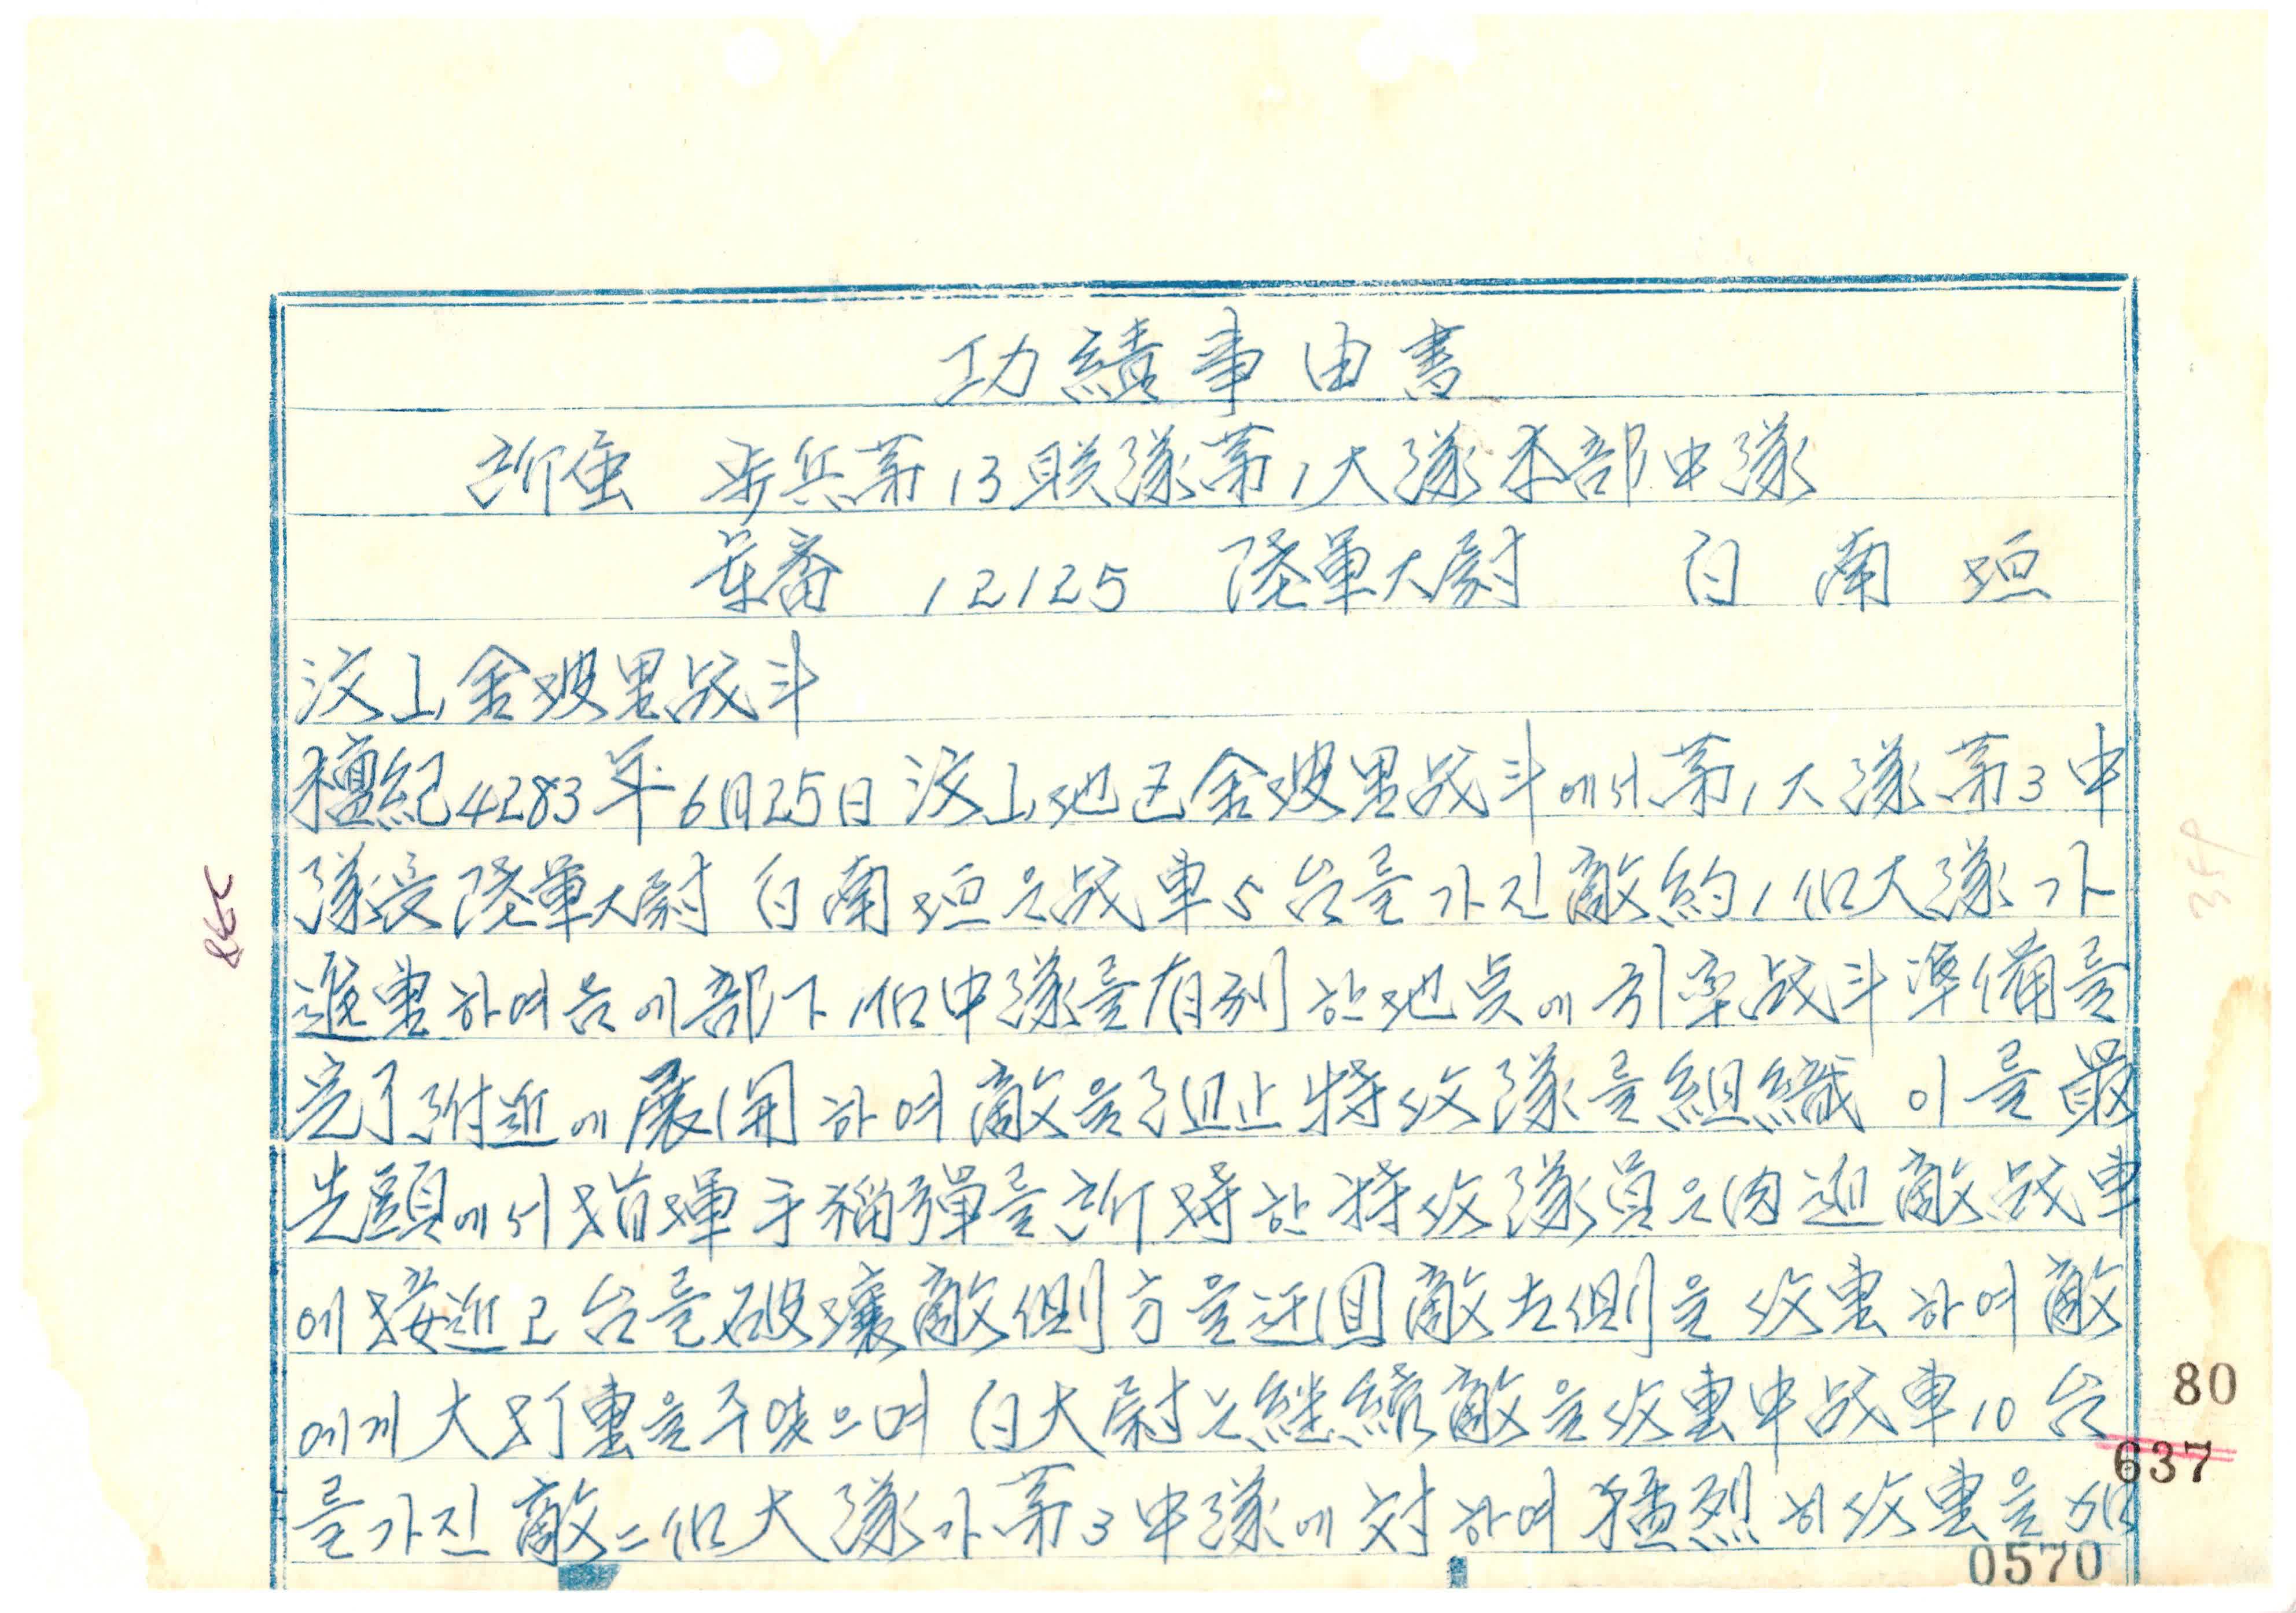 功績事由書
所屬 步兵第13联隊第1大隊本部中隊
軍番 12125 陸軍大尉 白南垣
汶山金坡里战斗
檀紀4283年6月25日汶山地区金坡里战斗에서第1大隊第3中
隊長陸軍大尉 白南垣은战車5台를가진敵約1個大隊가
進擊하여옴에部下1個中隊를有利한地点에引率战斗準備를
完了附近에展開하여敵을阻止特攻隊를組織 이를最
先頭에서指揮手榴彈을所持한特攻隊員은肉迫敵战車
에接近2台를破壞敵側方을迂回敵左側을攻擊하여敵
에게大打擊을주었으며 白大尉는繼續敵을攻擊中战車10台
를가진敵二個大隊가第3中隊에対하여猛烈히攻擊을加
80
637
0570